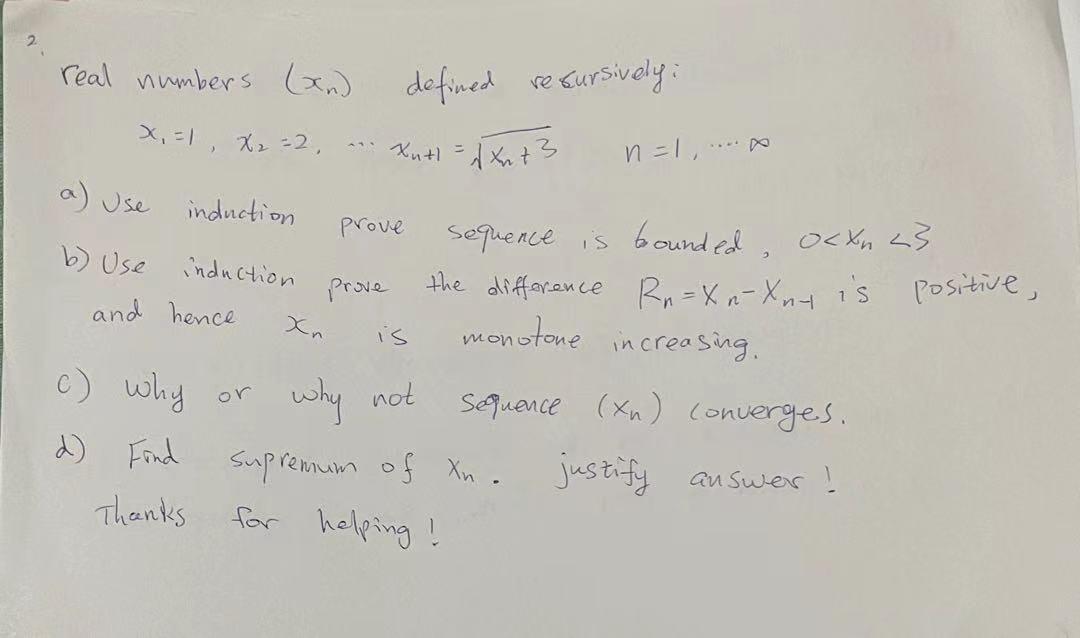 2.
real numbers (xn) defined recursively:
x₁=1, x₂=2, ... xn+1 = √xn+3 n=1, .... ∞
a) Use induction prove sequence is bounded, 0<xn<3
b) Use induction prove the difference Rn=xn-xn-1 is positive,
and hence xn is monotone increasing.
c) Why or why not sequence (xn) converges.
d) Find supremum of xn. justify answer!
Thanks for helping!